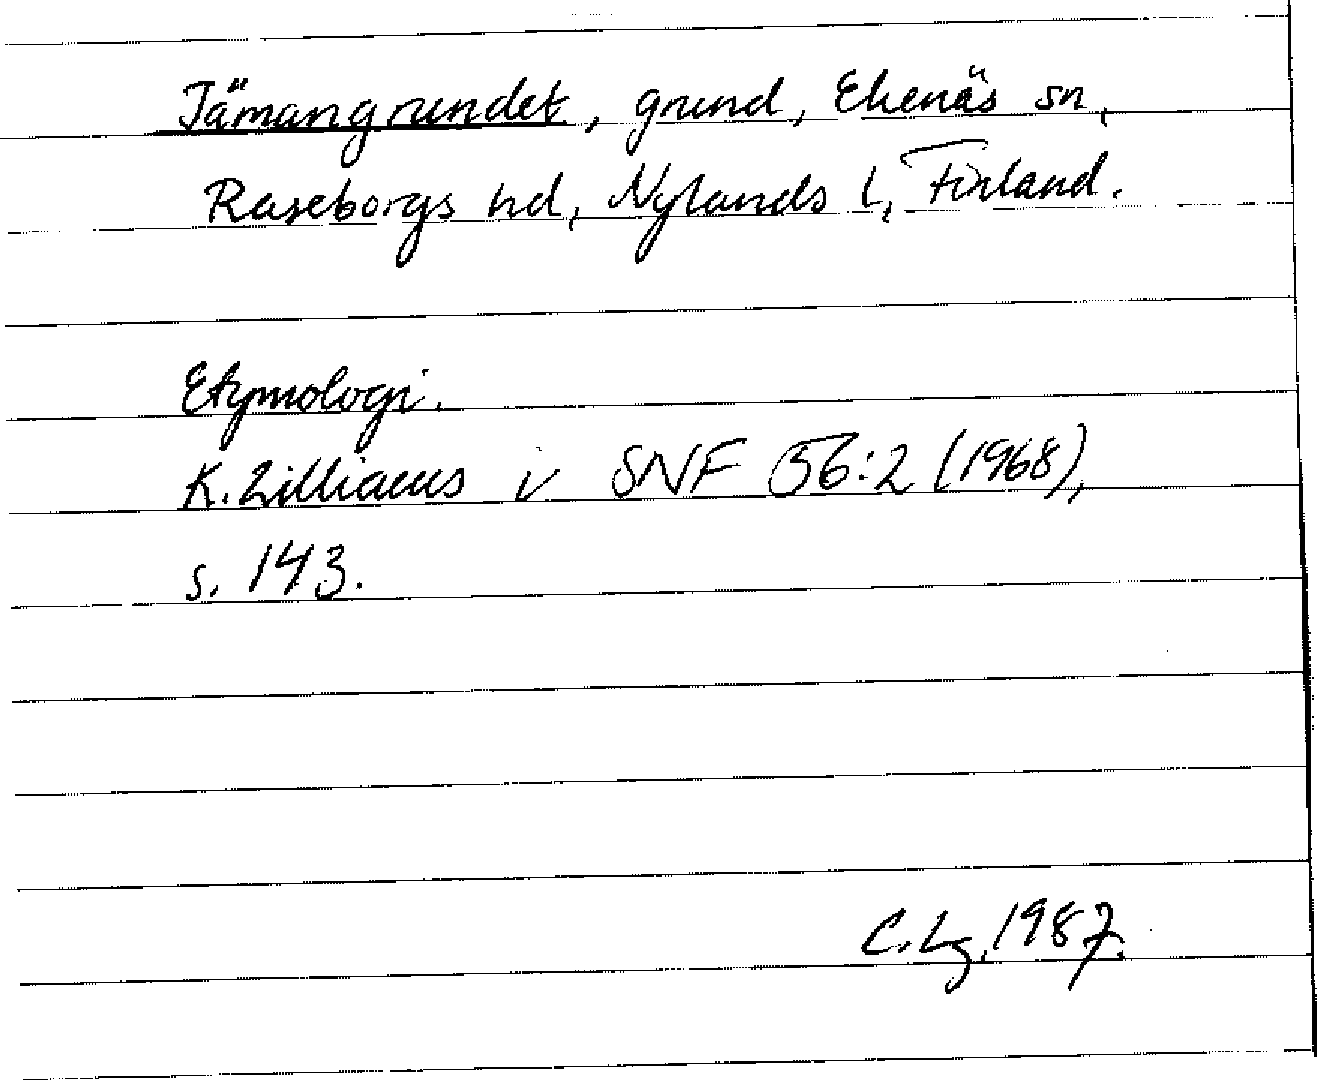 Jämangrundet, grund, Ekenäs sn,
Raseborgs hd, Nylands l, Finland.
Etymologi.
K. Zilliacus i SNF 56:2 (1968),
s. 143.
C. Lg, 1987.